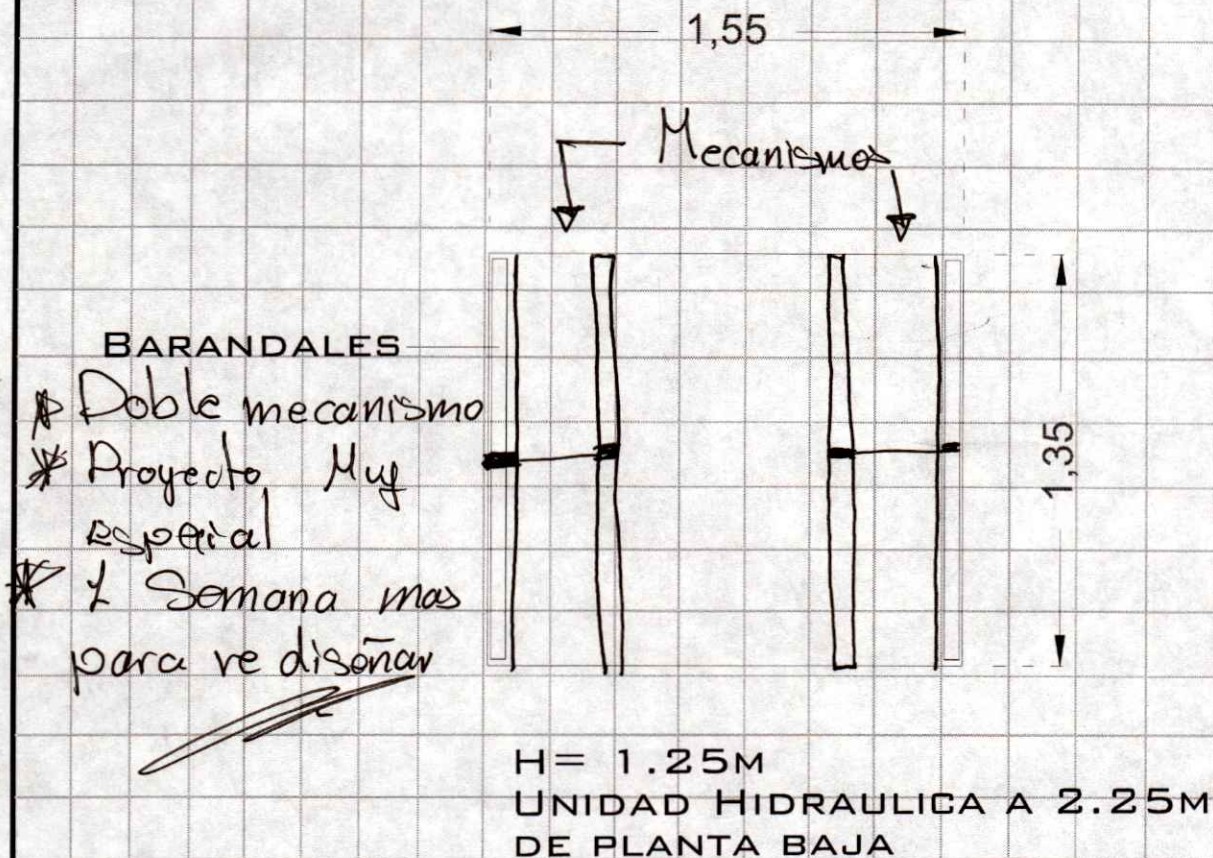 1,55
Mecanismos
BARANDALES
Doble mecanismo
* Proyecto Muy
especial
* 1 Semana mas
para re diseñar
1,35
H= 1.25M
UNIDAD HIDRAULICA A 2.25M
DE PLANTA BAJA